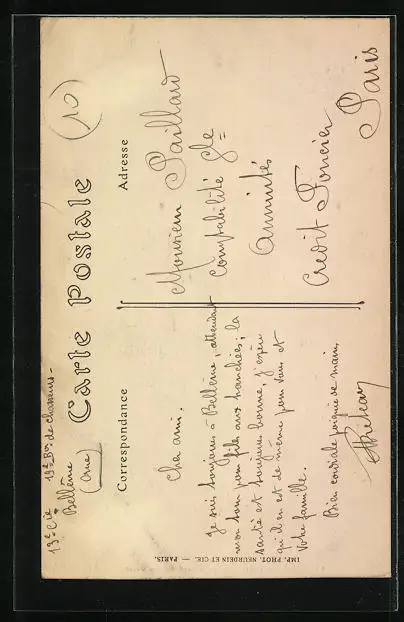 13e Cie 19e Bon de chasseurs -
Bellême
(Orne)
(10)
Carte Postale
Correspondance
Adresse
Cher ami.
Je suis toujours à Bellême, attendant
mon tour pour aux tranchées; la
santé est toujours bonne, j'espère
qu'il en est de même pour vous et
votre famille.
Bien cordiale poignée de main
Monsieur Paillard
Comptabilité Gle
Annuités
Crédit Foncier
Paris
IMP. PHOT. NEURDEIN ET CIE. — PARIS.